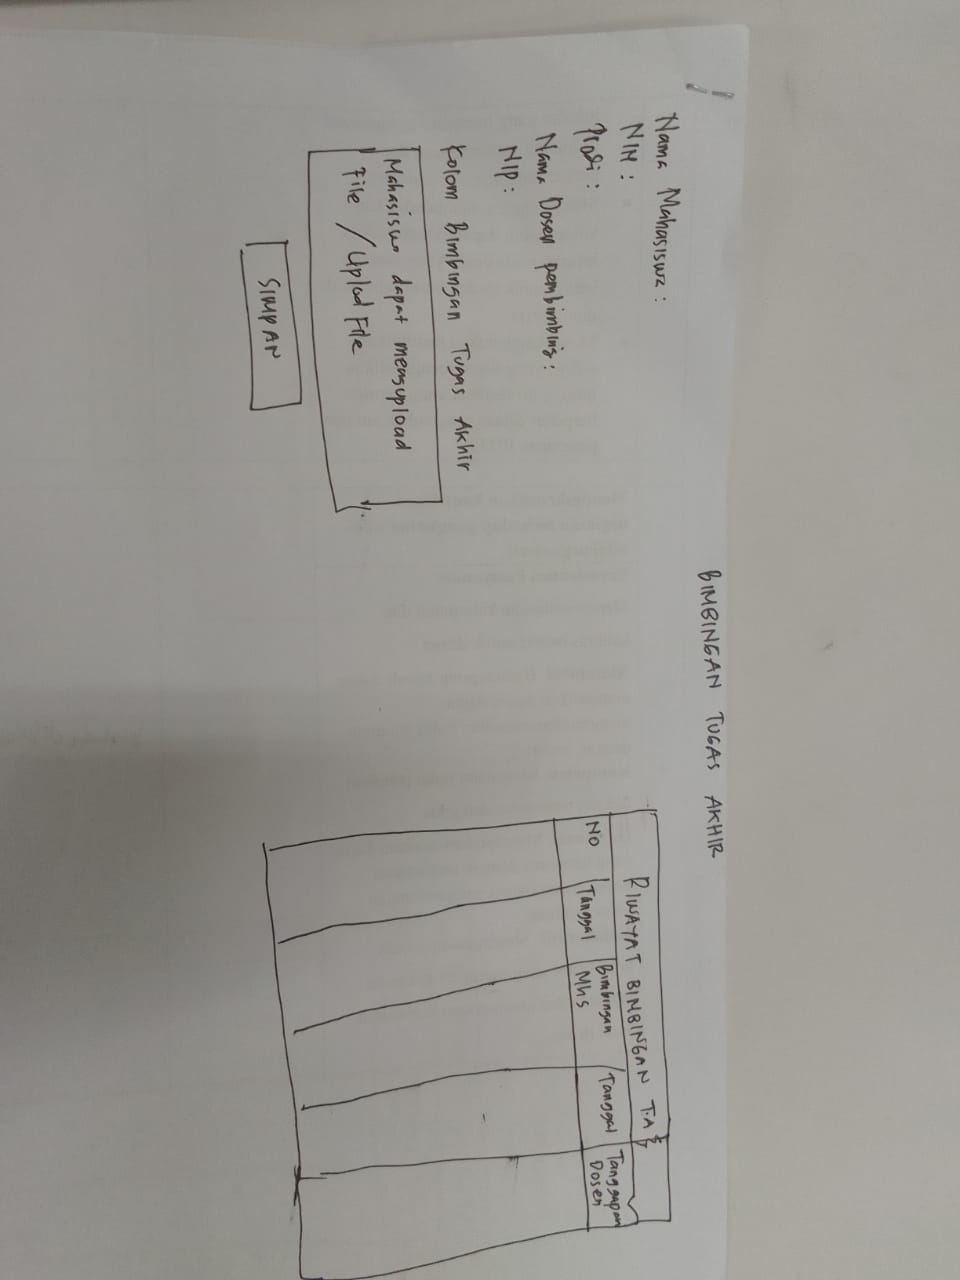 BIMBINGAN TUGAS AKHIR
Nama Mahasiswa :
NIM :
Prodi :
Nama Dosen pembimbing :
NIP :
Kolom Bimbingan Tugas Akhir
Mahasiswa dapat mengupload
File / Uplod File
SIMPAN
RIWAYAT BIMBINGAN T.A
No
Tanggal
Bimbingan
Mhs
Tanggal
Tanggapan
Dosen